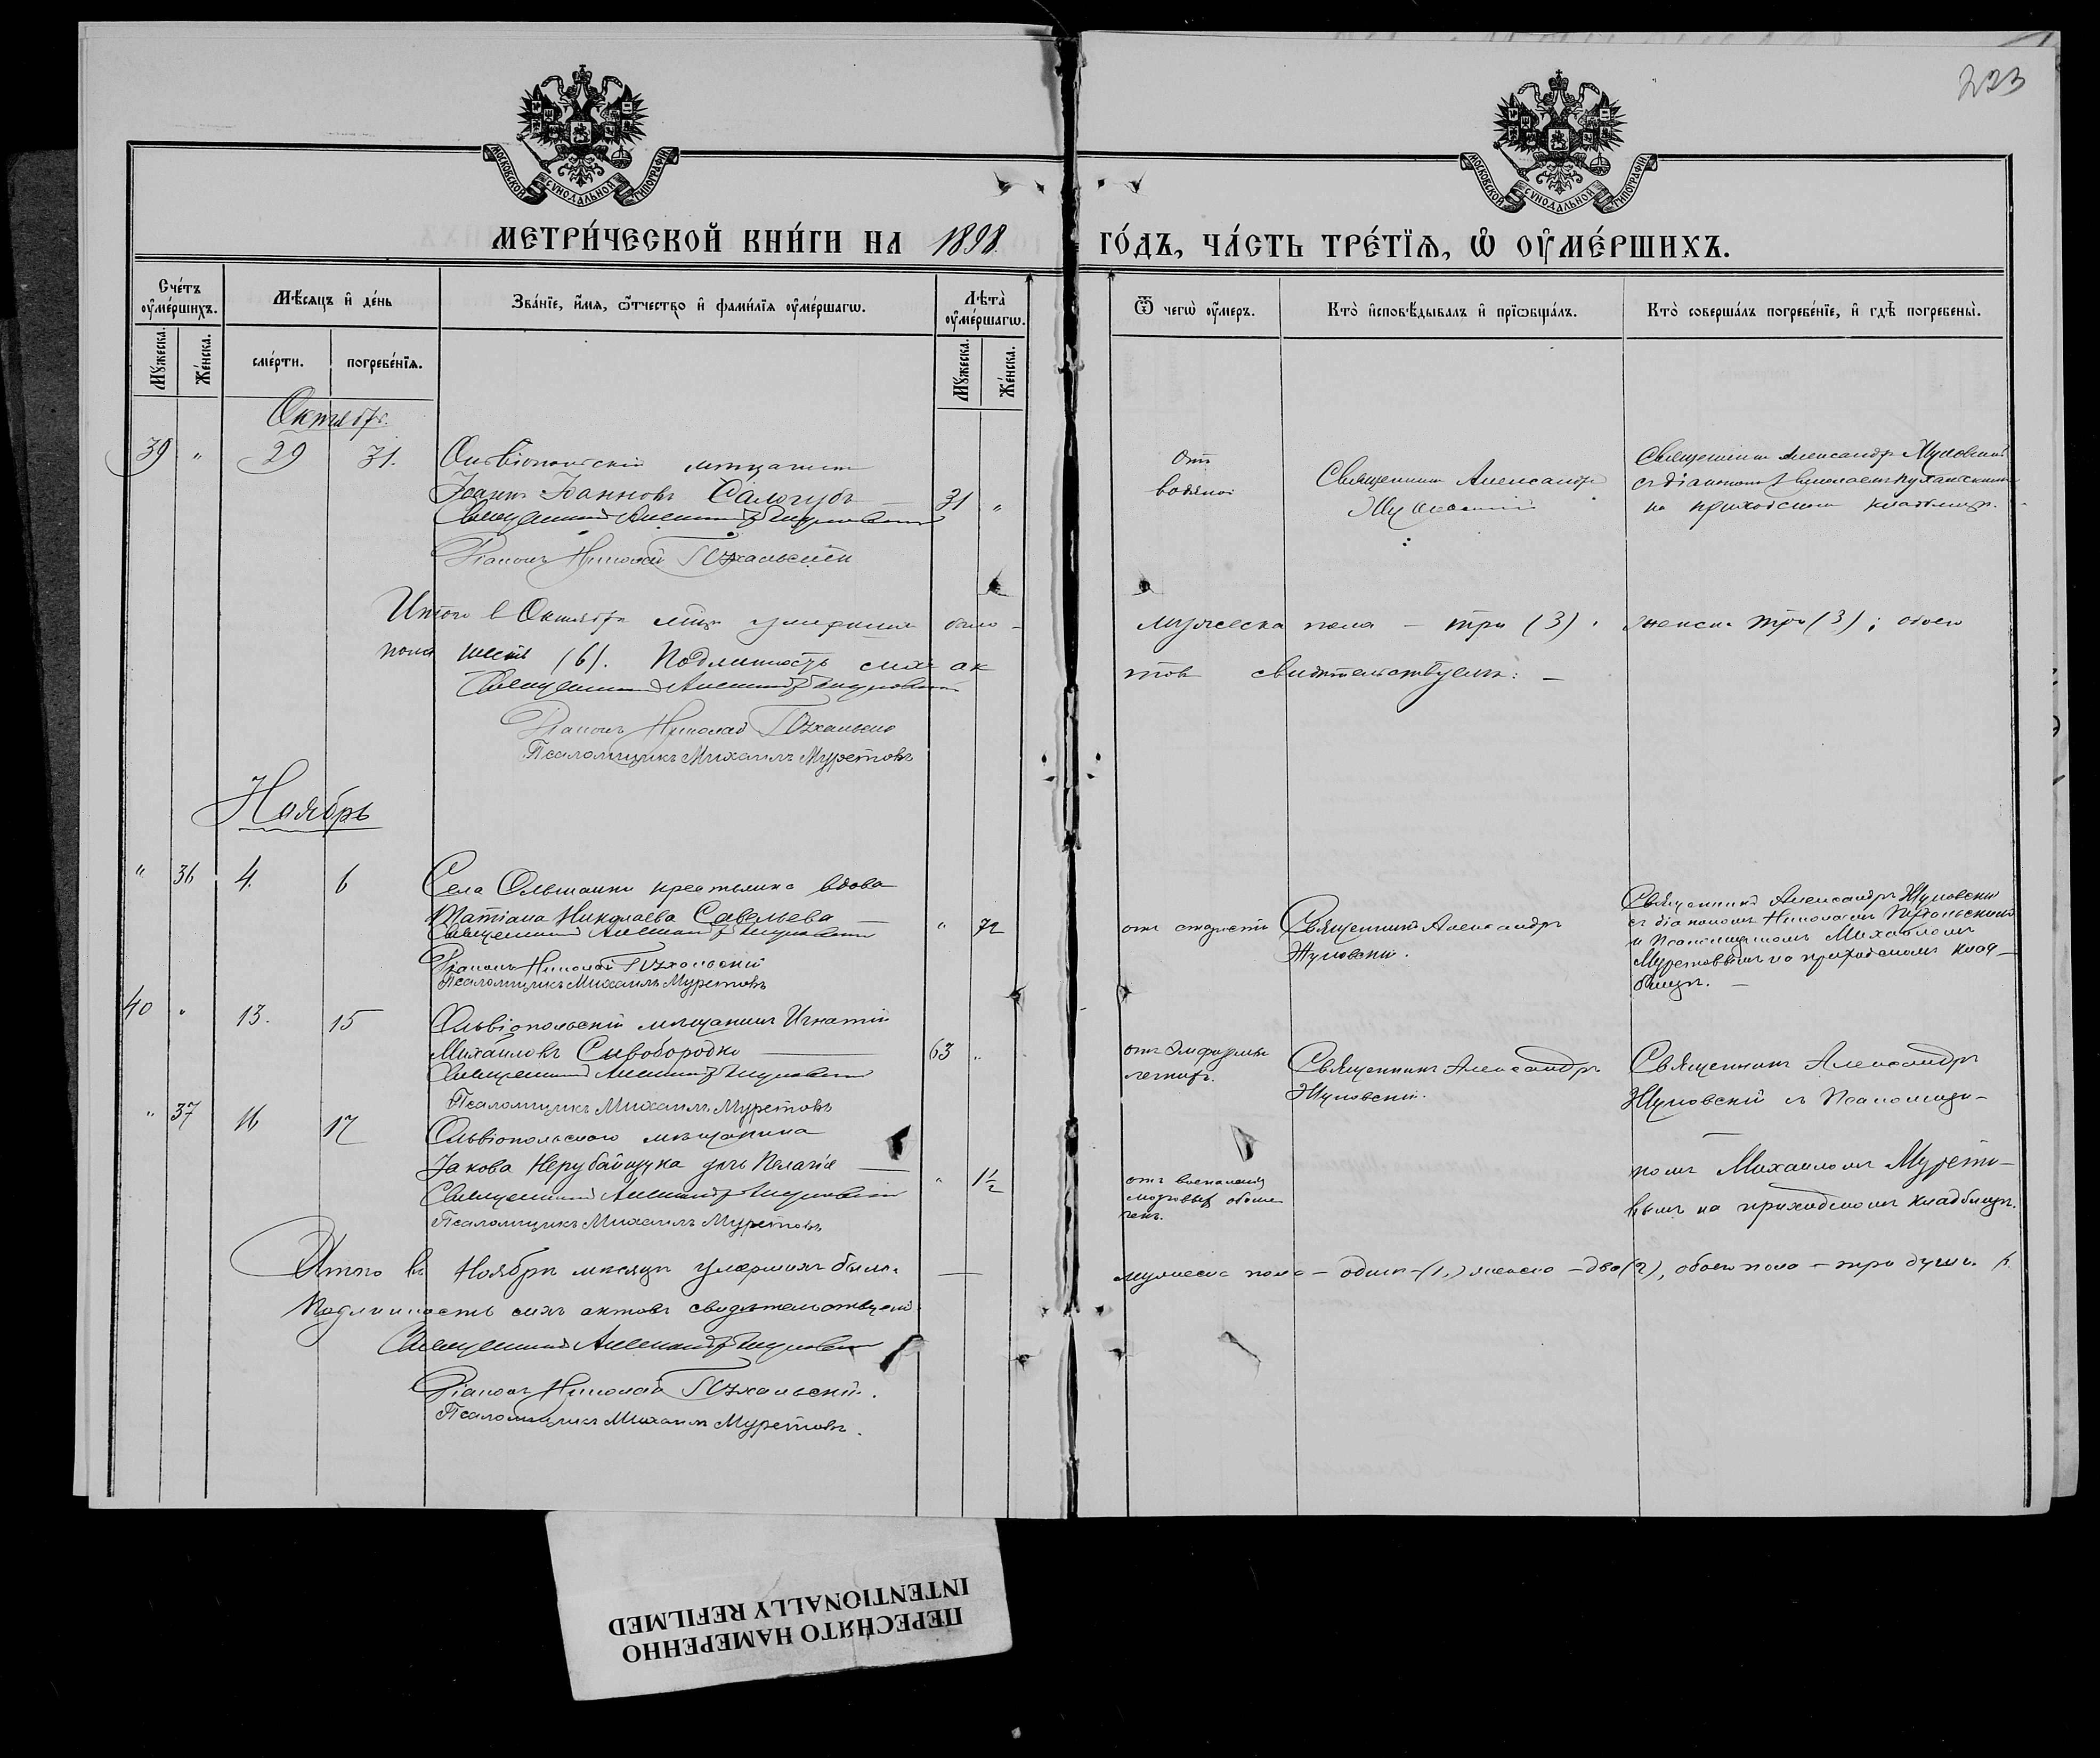 223
МОСКОВСКОЙ СѴНОДАЛЬНОЙ ТИПОГРАФІИ
МОСКОВСКОЙ СѴНОДАЛЬНОЙ ТИПОГРАФІИ
МЕТРИ́ЧЕСКОЙ КНИ́ГИ НА 1898. ГО́ДЪ, ЧА́СТЬ ТРЕ́ТЇѦ, Ѡ ОУМЕ́РШИХЪ.
Сче́тъ оумершихъ.
Мѣсѧцъ и де́нь
Зва́нїе, и́мѧ, ѿтчество и фами́лїѧ оуме́ршагѡ.
Лѣта̀ оуме́ршагѡ.
Ѿ чегѡ̀ оумеръ.
Кто̀ исповѣдывалъ и прїѡбща́лъ.
Кто̀ соверша́лъ погребе́нїе, и гдѣ погребены̀.
Мꙋжеска.
Же́нска.
сме́рти.
погребе́нїѧ.
Мꙋжеска.
Же́нска.
Октябрь.
39 " 29 31.
Ольвіопольскій мѣщанинъ
Іоаннъ Іоанновъ Сологубъ — 31 "
Священникъ Александръ Жуковскій
Діаконъ Николай Пухальскій
Отъ
водяной
Священникъ Александръ
Жуковскій
Священникъ Александръ Жуковскій
съ діакономъ Николаемъ Пухальскимъ
на приходскомъ кладбищѣ.
Итого в Октябрѣ мцѣ умершихъ было — мужеска пола — три (3), женска три (3); обоего
пола шесть (6). Подлинность сихъ актовъ свидѣтельствуемъ: —
Священникъ Александръ Жуковскій
Діаконъ Николай Пухальскій
Псаломщикъ Михаилъ Муретовъ
Ноябрь
" 36 4. 6
Села Ольшанки крестьянка вдова
Татіана Николаева Савельева — " 72
Священникъ Александръ Жуковскій
Діаконъ Николай Пухальскій
Псаломщикъ Михаилъ Муретовъ
отъ старости
Священникъ Александръ
Жуковскій.
Священникъ Александръ Жуковскій
съ діакономъ Николаемъ Пухальскимъ
и Псаломщикомъ Михаиломъ
Муретовымъ на приходскомъ клад-
бищѣ. —
40 " 13. 15
Ольвіопольскій мѣщанинъ Игнатій
Михайловъ Сивобородко — 63 "
Священникъ Александръ Жуковскій
Псаломщикъ Михаилъ Муретовъ
отъ эмфиземы
легкихъ.
Священникъ Александръ
Жуковскій.
Священникъ Александръ
Жуковскій съ Псаломщи-
" 37 16 17
Ольвіопольскаго мѣщанина
Іакова Нерубайщука дочь Пелагія — " 1½
Священникъ Александръ Жуковскій
Псаломщикъ Михаилъ Муретовъ
отъ воспаленія
мозговыхъ оболо
чекъ.
комъ Михаиломъ Мурето-
вымъ на приходскомъ кладбищѣ.
Итого въ Ноябрѣ мѣсяцѣ умершихъ было — мужеска пола — одинъ — (1,) женска — два (2), обоего пола — три души.
Подлинность сихъ актовъ свидѣтельствуемъ
Священникъ Александръ Жуковскій
Діаконъ Николай Пухальскій.
Псаломщикъ Михаилъ Муретовъ.
ПЕРЕСНЯТО НАМЕРЕННО
INTENTIONALLY REFILMED